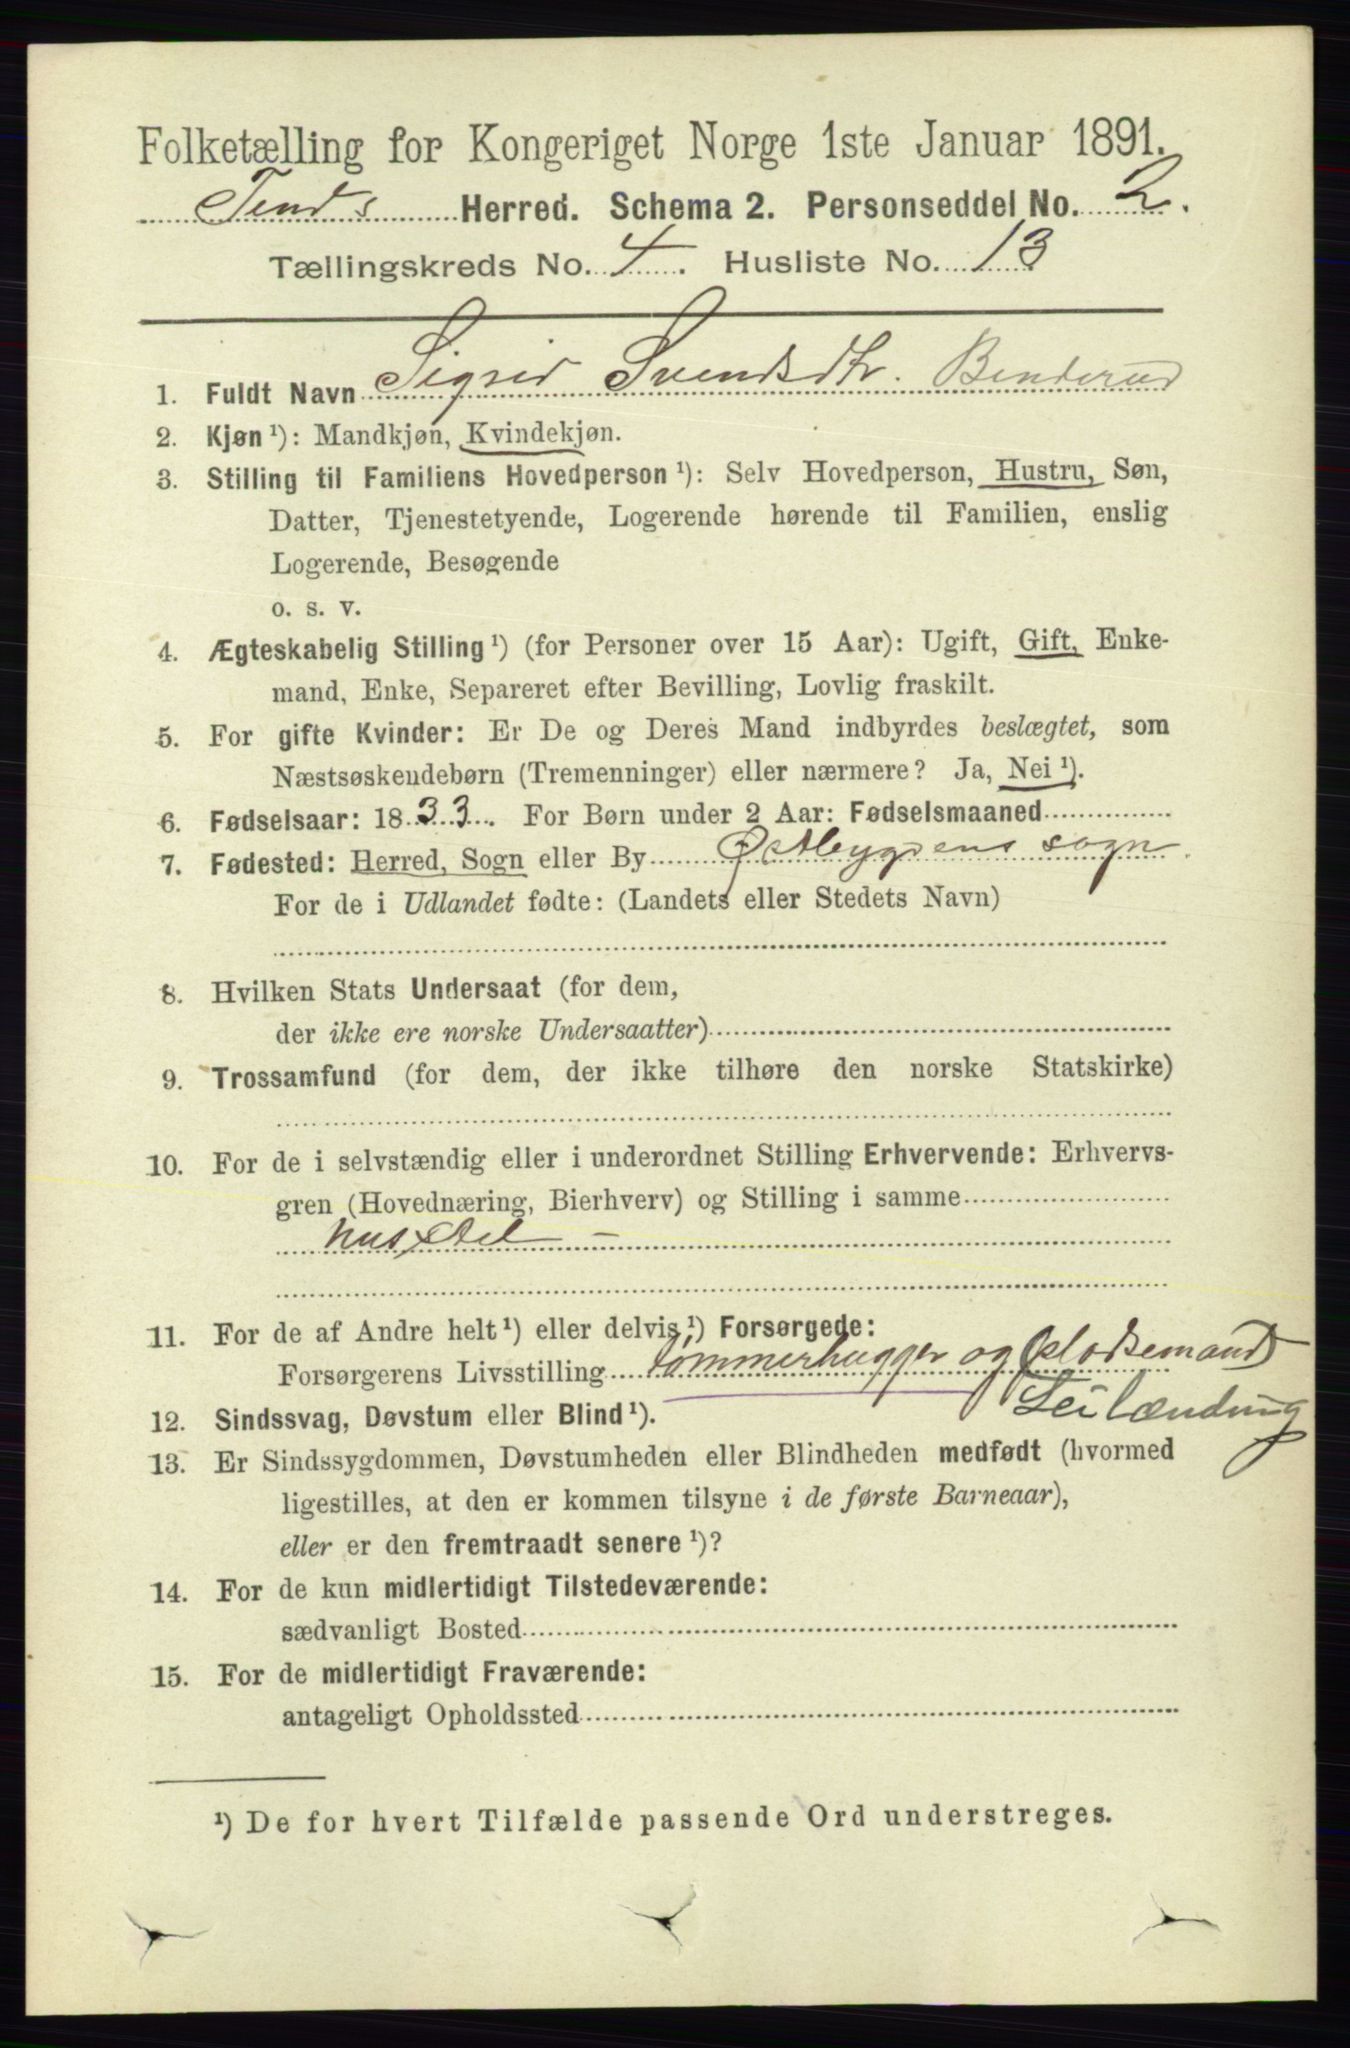 Folketælling for Kongeriget Norge 1ste Januar 1891.
Tinds Herred. Schema 2. Personseddel No. 2.
Tællingskreds No. 4. Husliste No. 13
1. Fuldt Navn Sigrid Svendsdtr. Benderud
2. Kjøn ¹): Mandkjøn, Kvindekjøn.
3. Stilling til Familiens Hovedperson ¹): Selv Hovedperson, Hustru, Søn,
Datter, Tjenestetyende, Logerende hørende til Familien, enslig
Logerende, Besøgende
o. s. v.
4. Ægteskabelig Stilling ¹) (for Personer over 15 Aar): Ugift, Gift, Enke-
mand, Enke, Separeret efter Bevilling, Lovlig fraskilt.
5. For gifte Kvinder: Er De og Deres Mand indbyrdes beslægtet, som
Næstsøskendebørn (Tremenninger) eller nærmere? Ja, Nei ¹).
6. Fødselsaar: 1833. For Børn under 2 Aar: Fødselsmaaned
7. Fødested: Herred, Sogn eller By Østbygdens sogn.
For de i Udlandet fødte: (Landets eller Stedets Navn)
8. Hvilken Stats Undersaat (for dem,
der ikke ere norske Undersaatter)
9. Trossamfund (for dem, der ikke tilhøre den norske Statskirke)
10. For de i selvstændig eller i underordnet Stilling Erhvervende: Erhvervs-
gren (Hovednæring, Bierhverv) og Stilling i samme
husstel –
11. For de af Andre helt ¹) eller delvis ¹) Forsørgede:
Forsørgerens Livsstilling tømmerhugger og plodsemand
Leilænding
12. Sindssvag, Døvstum eller Blind ¹).
13. Er Sindssygdommen, Døvstumheden eller Blindheden medfødt (hvormed
ligestilles, at den er kommen tilsyne i de første Barneaar),
eller er den fremtraadt senere ¹)?
14. For de kun midlertidigt Tilstedeværende:
sædvanligt Bosted
15. For de midlertidigt Fraværende:
antageligt Opholdssted
¹) De for hvert Tilfælde passende Ord understreges.